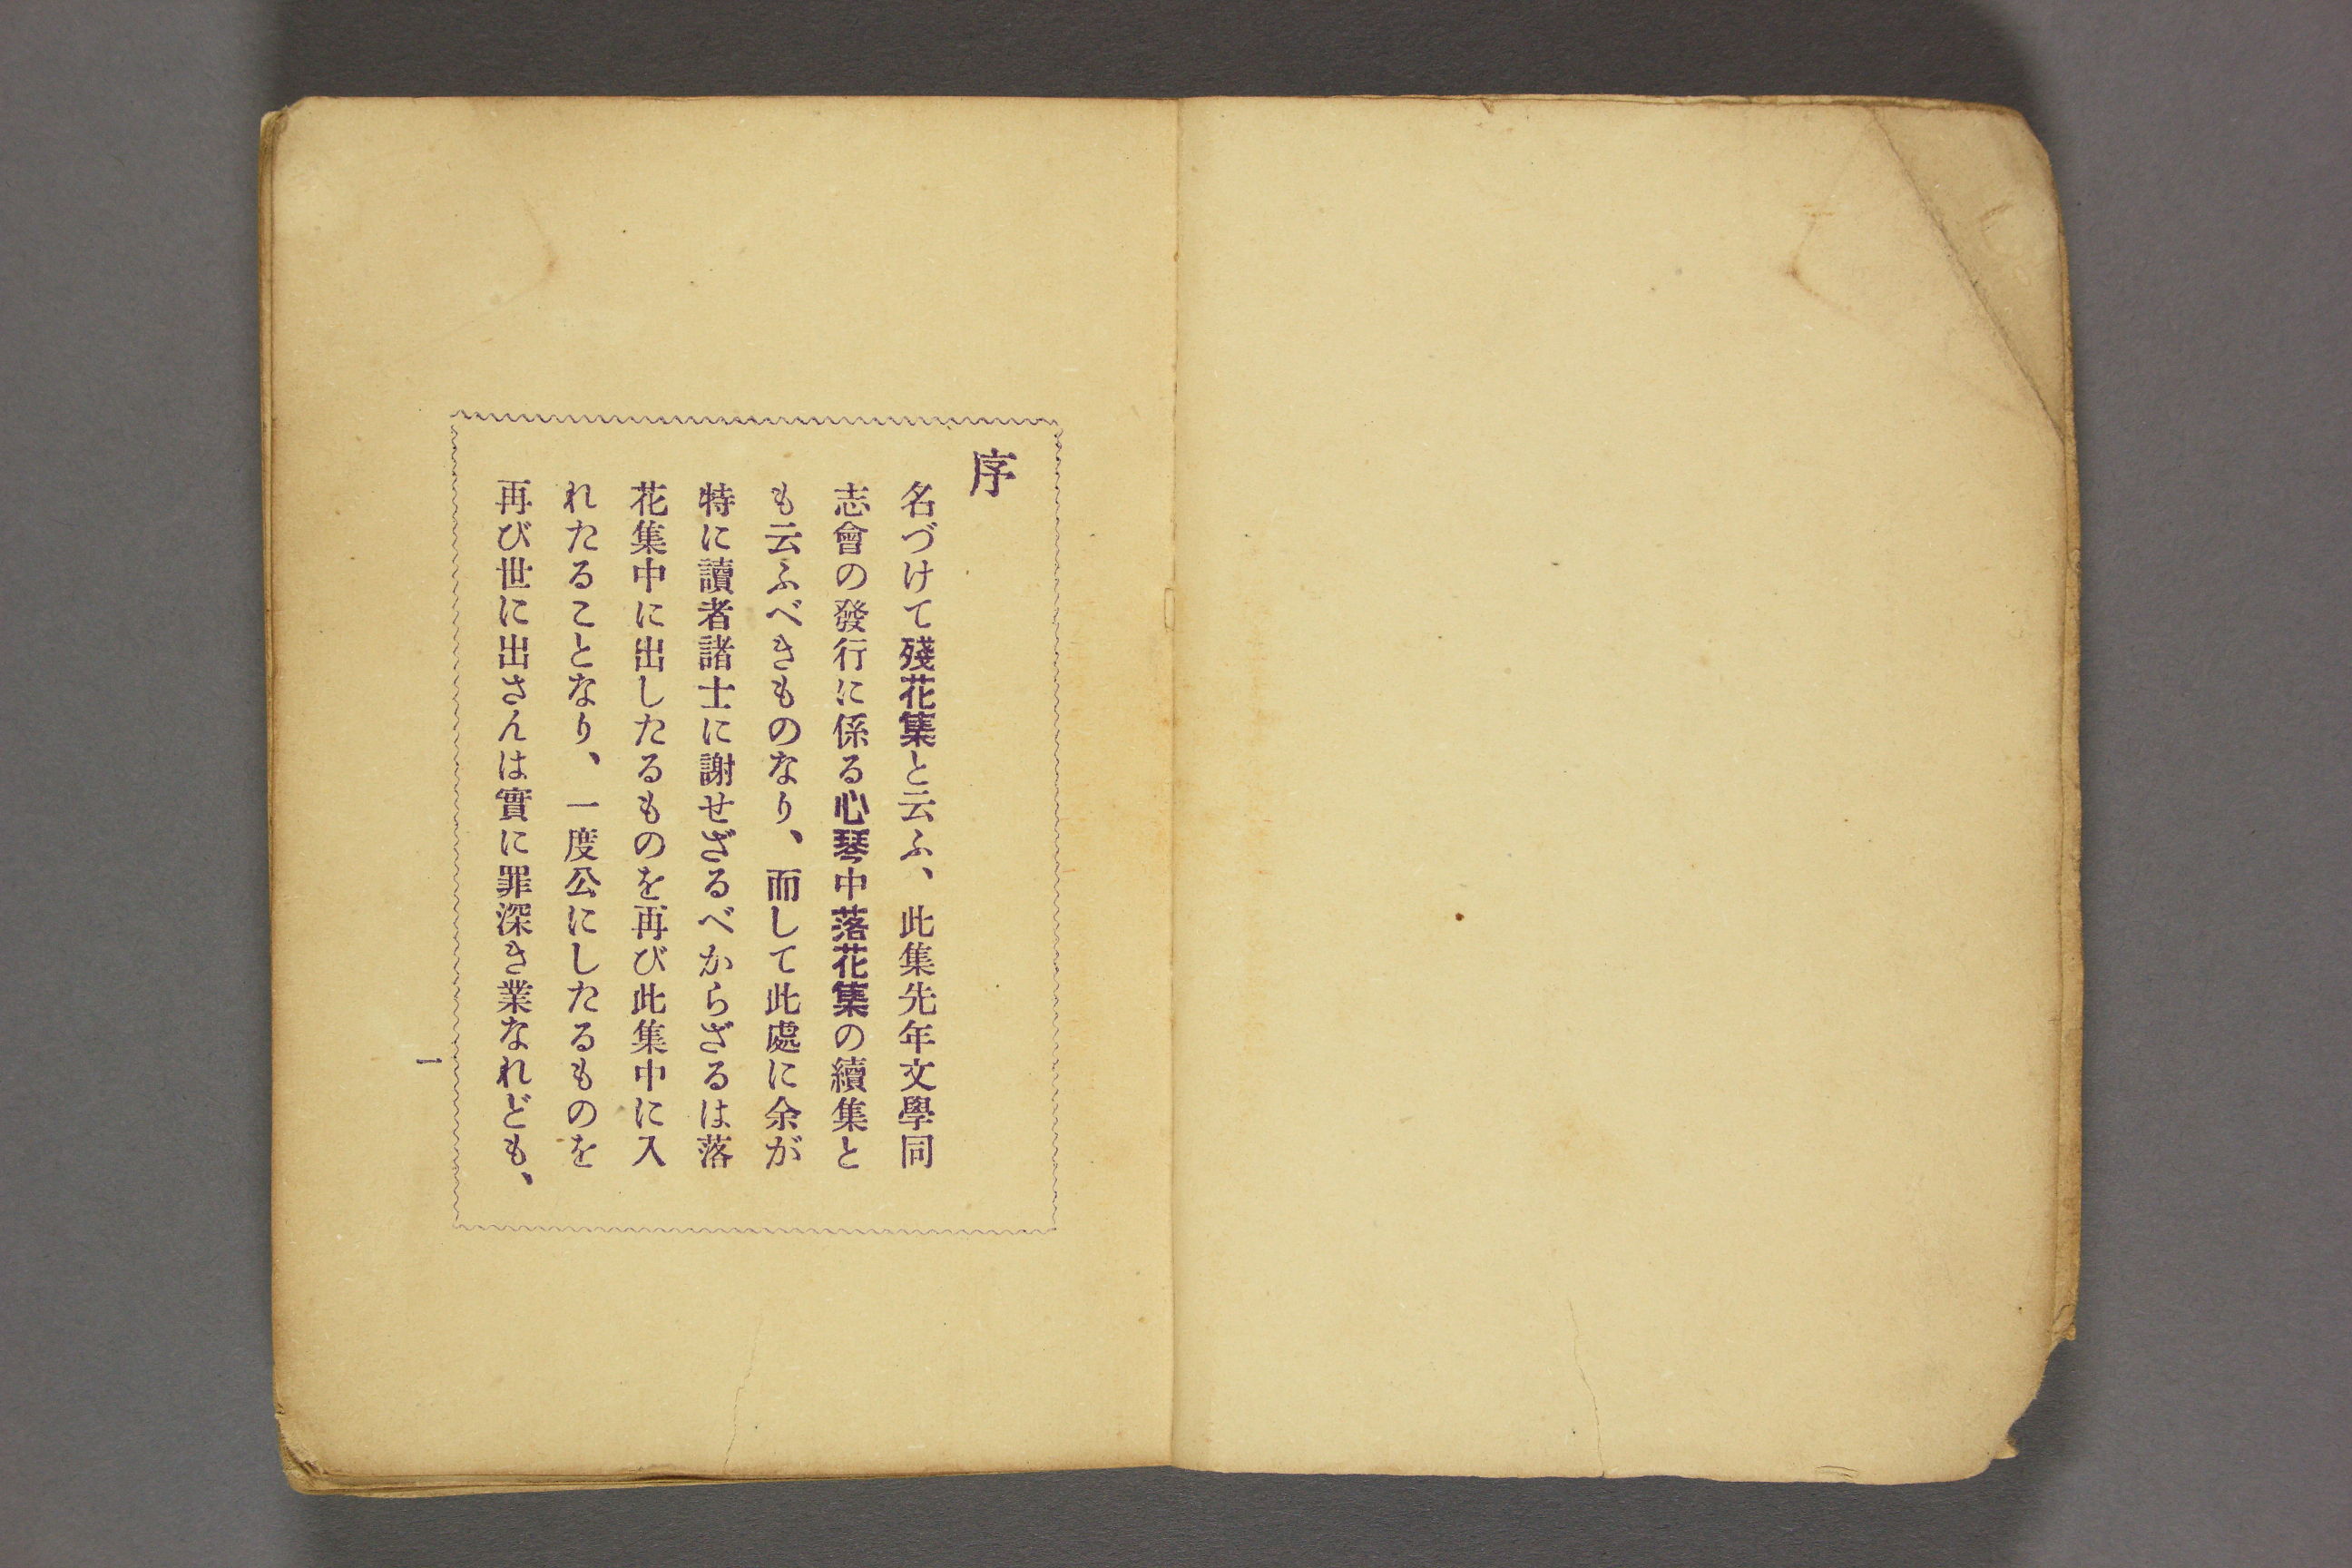 序
名づけて殘花集と云ふ、此集先年文學同
志會の發行に係る心琴中落花集の續集と
も云ふべきものなり、而して此處に余が
特に讀者諸士に謝せざるべからざるは落
花集中に出したるものを再び此集中に入
れたることなり、一度公にしたるものを
再び世に出さんは實に罪深き業なれども、
一